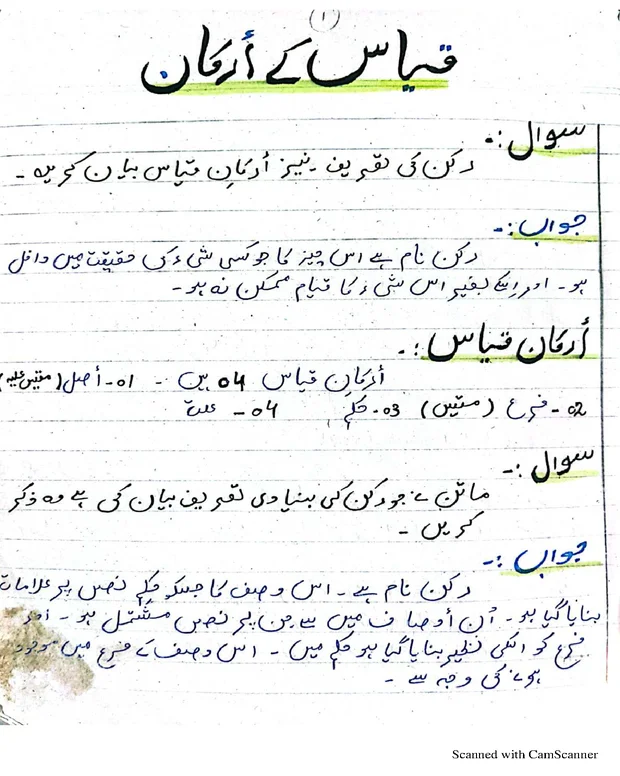 (۱)
قیاس کے أرکان
سوال:-
رکن کی تعریف نیز أرکانِ قیاس بیان کریں۔
جواب:-
رکن نام ہے اس چیز کا جو کسی شیء کی حقیقت میں داخل
ہو۔ اور اسکے بغیر اس شیء کا قیام ممکن نہ ہو۔
أرکان قیاس:-
أرکانِ قیاس 04 ہیں۔ 01- أصل (مقیس علیہ)
02- فرع (مقیس) 03- حکم 04- علت
سوال:-
ماتن نے جو رکن کی بنیادی تعریف بیان کی ہے وہ ذکر
کریں۔
جواب:-
رکن نام ہے۔ اس وصف کا جسکو حکم نص پر علامات
بنایا گیا ہو۔ اُن أوصاف میں سے جن پر نص مشتمل ہو۔ اور
فرع کو اسکی نظیر بنایا گیا ہو حکم میں۔ اس وصف کے فرع میں موجود
ہونے کی وجہ سے۔
Scanned with CamScanner